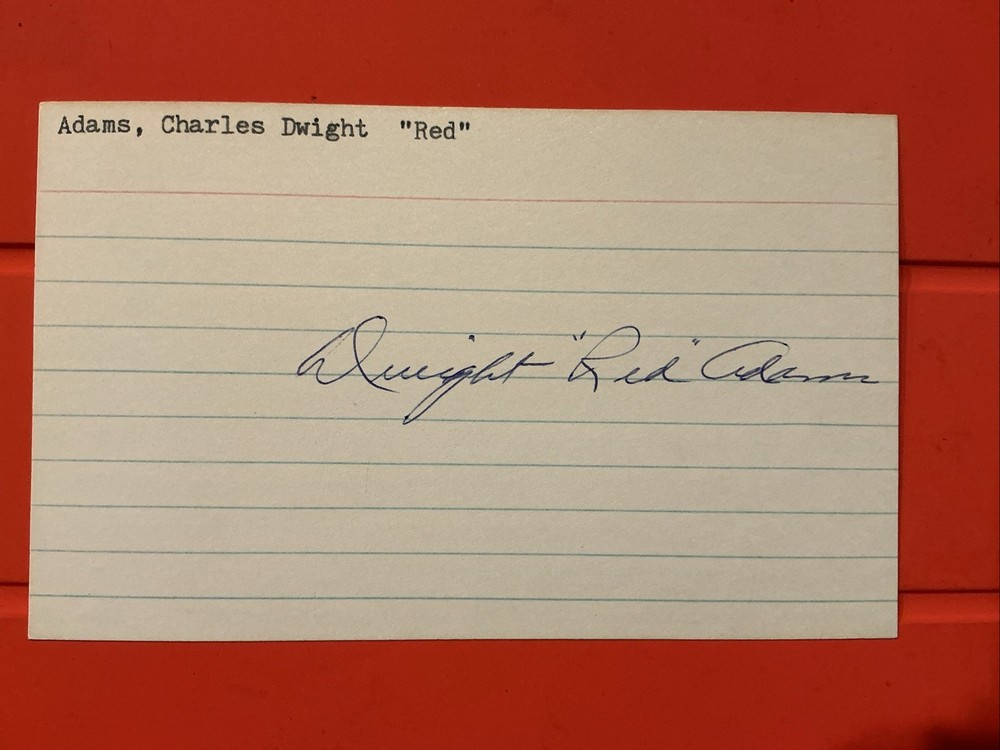 Adams, Charles Dwight "Red"
Dwight "Red" Adams